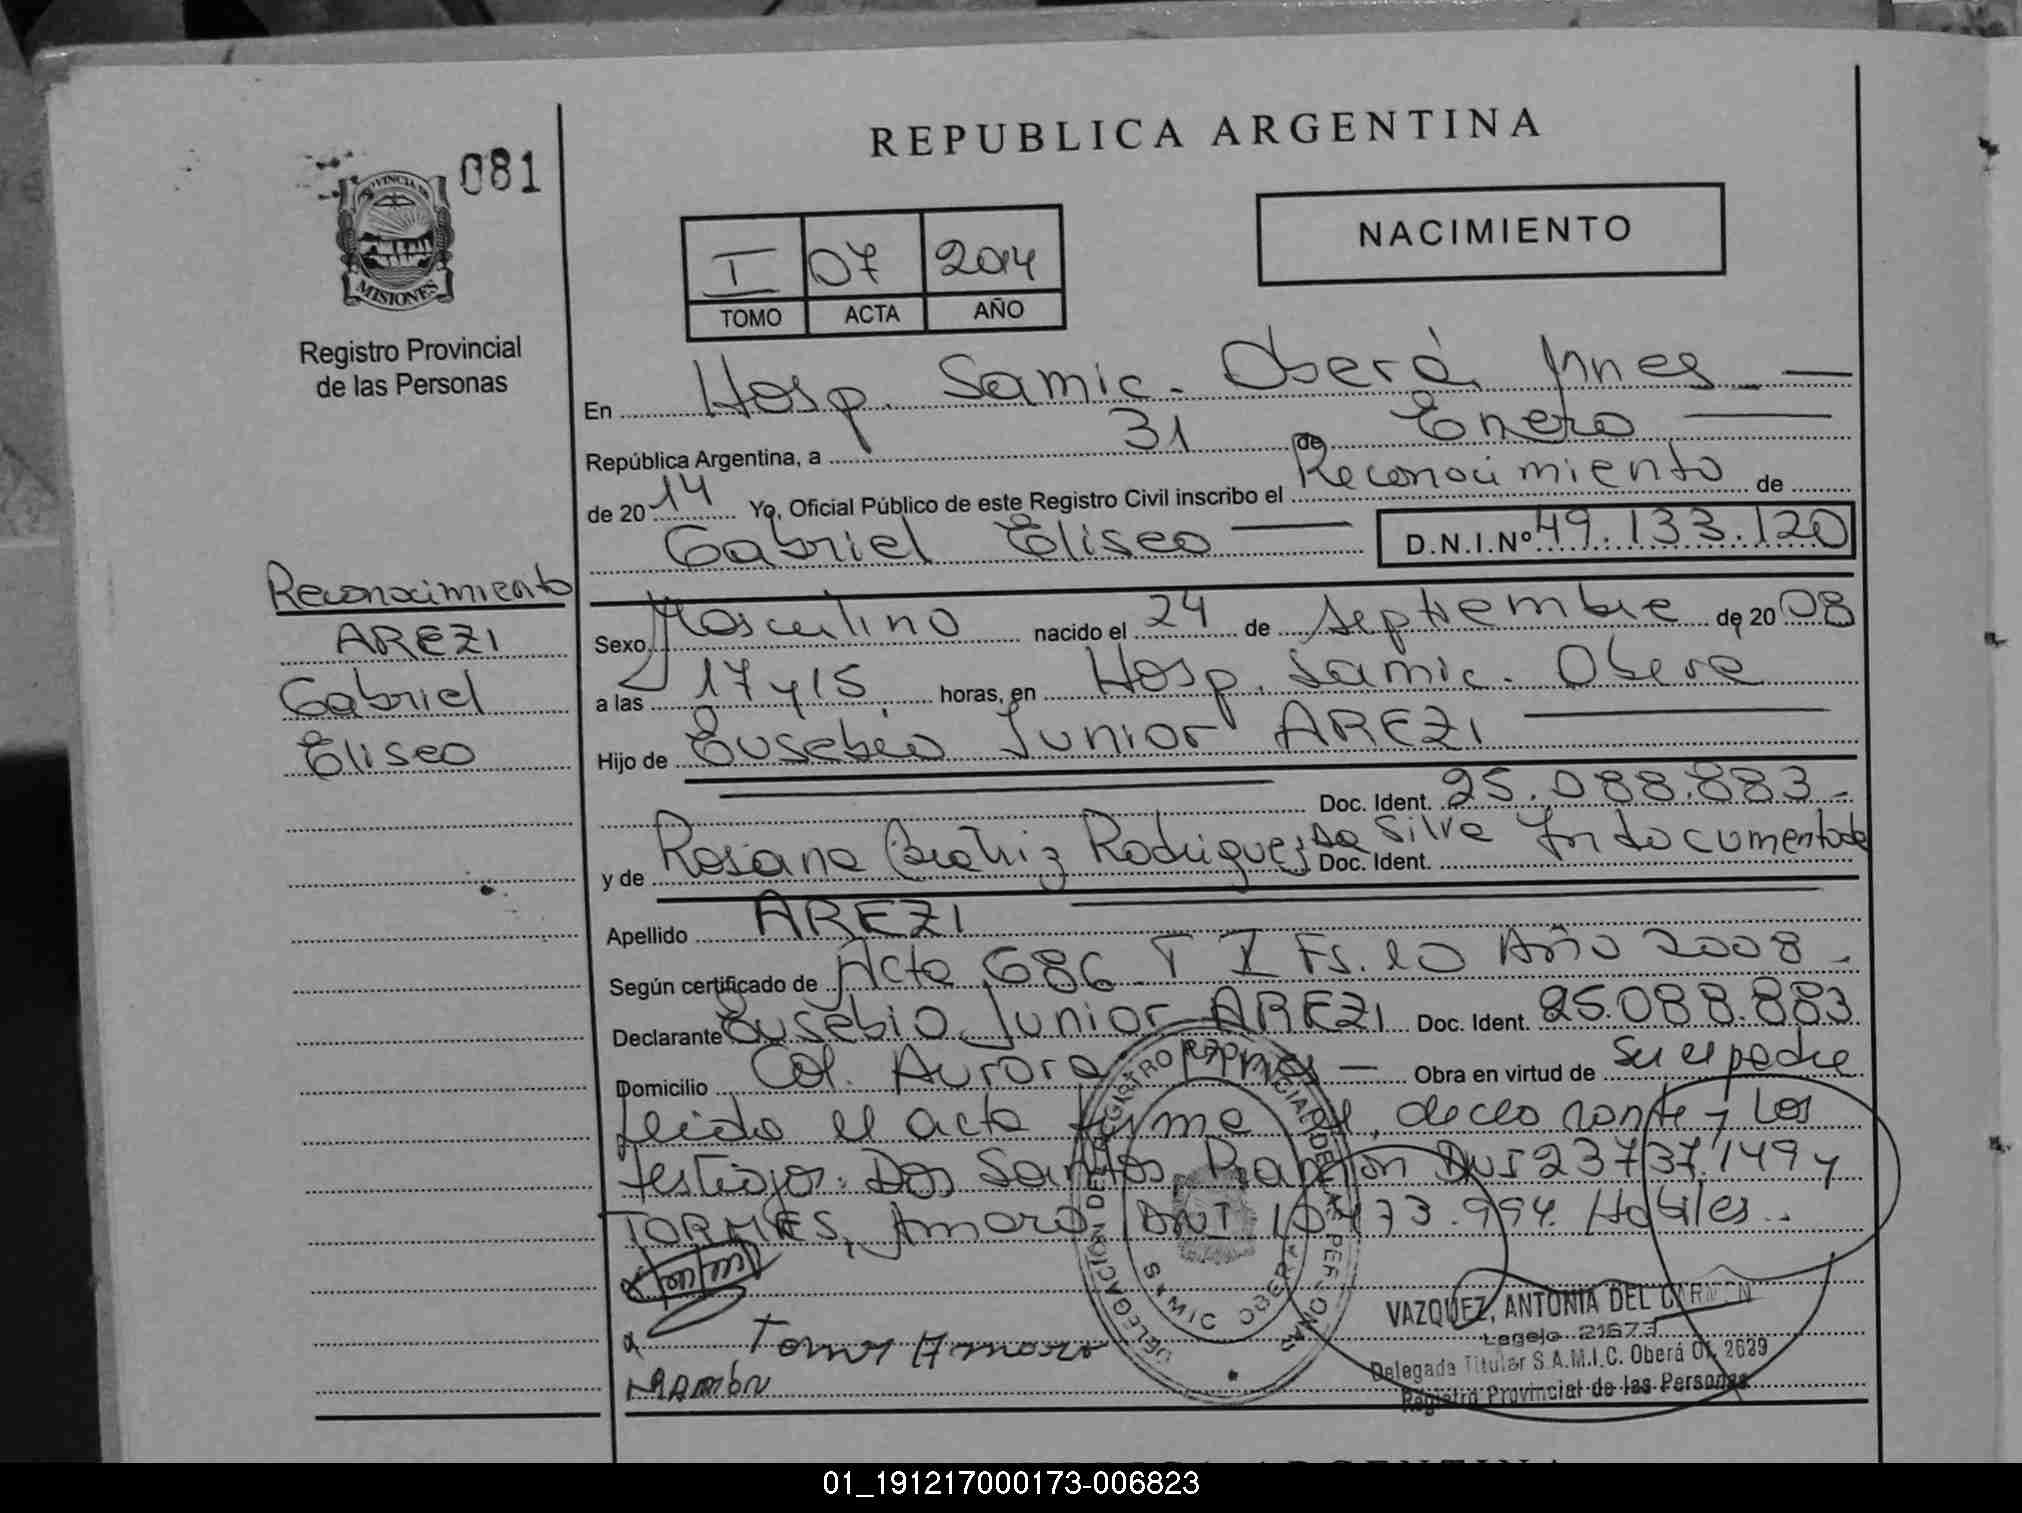 REPUBLICA ARGENTINA
081
PROVINCIA DE
MISIONES
Registro Provincial
de las Personas
NACIMIENTO
I 07 2014
TOMO ACTA AÑO
En Hosp. Samic. Oberá Mnes
República Argentina, a 31 de Enero
de 2014 Yo, Oficial Público de este Registro Civil inscribo el Reconocimiento de
Gabriel Eliseo D.N.I.Nº 49.133.120
Reconocimiento
AREZI
Gabriel
Eliseo
Sexo Masculino nacido el 24 de Septiembre de 2008
a las 17 y 15 horas, en Hosp. Samic. Obera
Hijo de Eusebio Junior AREZI
Doc. Ident. 25.088.883.-
y de Rosana Beatriz Rodrigues Da Silva Doc. Ident. Indocumentada
Apellido AREZI
Según certificado de Acta 686 T I Fs. 20 Año 2008.-
Declarante Eusebio Junior AREZI Doc. Ident. 25.088.883
Domicilio Col. Aurora Mnes Obra en virtud de Ser el padre
Leida el acta firma el declarante y los
testigos: Dos Santos Ramon DNI 23737.149 y
TORMES, Amaro DNI Habiles..
DELEGACION DEL REGISTRO PROVINCIAL DE LAS PERSONAS
SAMIC OBERA
VAZQUEZ, ANTONIA DEL CARMEN
Legajo 21673
Delegada Titular S.A.M.I.C. Oberá Of. 2639
Registro Provincial de las Personas
Ramón
01_191217000173-006823